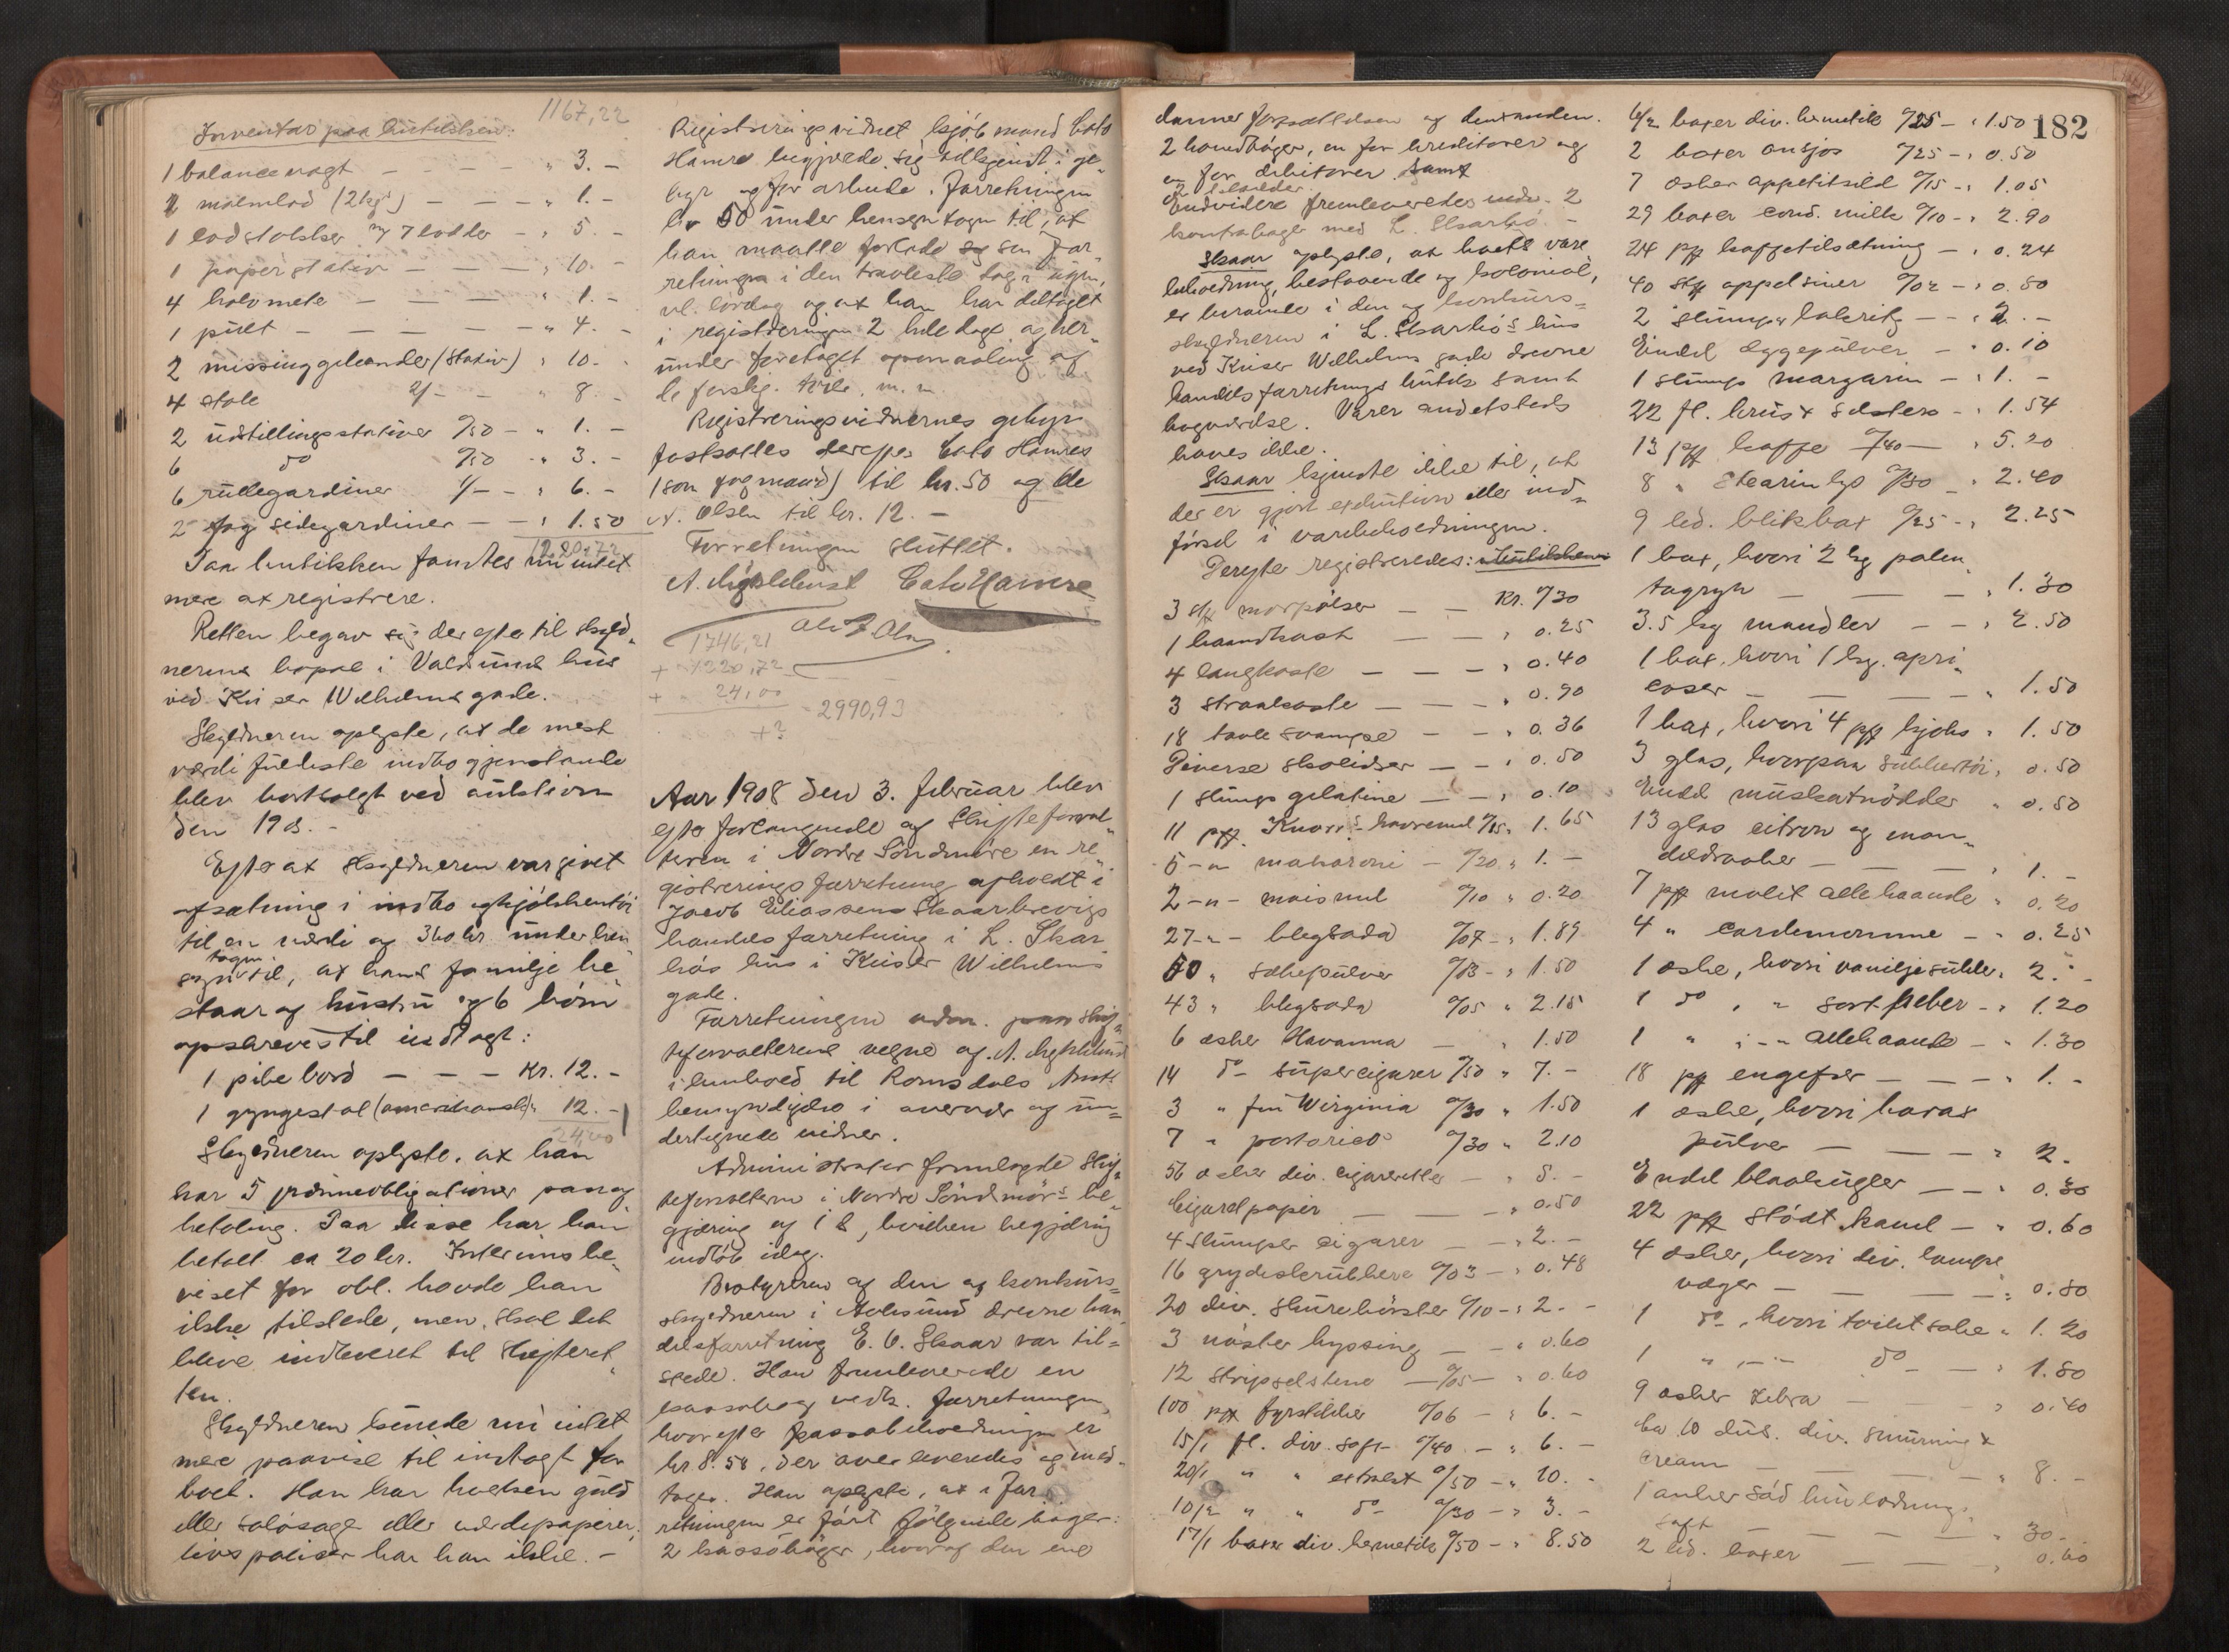 1167,22
Inventar paa butikken:
1 balancevagt - - - - " 3. -
2 malmlod (2 kgs) - - - " 1. -
1 lodstokker m/ 7 lodder - " 5. -
1 papirstativ - - - " 10. -
4 halvmete - - - " 1. -
1 pult - - - - - " 4. -
2 missinggelænder (stativ) " 10. -
4 stole 2/- - " 8. -
2 udstillingsstativer 0/50 - " 1. -
6 do 0/50 " 3. -
6 rullegardiner 1/- - " 6. -
2 fag sidegardiner - - " 1.50
1220,72
Paa butikken fandtes nu intet
mere at registrere.
Retten begav sig derefter til skyld-
nerens bopæl i Valdsund hus
ved Keiser Wilhelms gade.
Skyldneren oplyste, at de mest
værdifuldeste indbogjenstande
blev bortsolgt ved auktion
den 190 . -
Efter at skyldneren var givet
afsætning i indbo og kjøkkentøi
til en værdi af 360 kr. under hen-
syntagen til, at hans familje be-
staar af hustru og 6 børn
opskreves til indtægt:
1 pibebord - - - Kr. 12. -
1 gyngestol (amerikansk) " 12. -
24,00
Skyldneren oplyste, at han
har 5 præmieobligationer paa af-
betaling. Paa disse har han
betalt ca 20 kr. Interimsbe-
viset for obl. havde han
ikke tilstede, men skal det
blive indleveret til skifteret-
ten.
Skyldneren kunde nu intet
mere paavise til indtægt for
boet. Han har hverken guld
eller sølvsager eller værdipapirer,
livspoliser har han ikke. -
Registreringsvidnet kjøbmand Cato
Hamre begjærede sig tilkjendt i ge-
byr og for arbeide i forretningen
kr 50 under hensyntagen til, at
han maatte forlade sin for-
retningen i den travleste tid i ugen,
vl. lørdag og at han har deltaget
i registreringen 2 hele dage og her-
under foretaget opmaaling af
de forskj. tøier m. m.
Registreringsvidnernes gebyr
fastsattes derefter Cato Hamres
(som fagmand) til kr. 50 og Ole
A. Olsen til kr. 12. -
Forretningen sluttet.
Cato Hamre
Ole J. Olsen
1746,21
+ 1220,72
+ 24,00
2990,93
+?
Aar 1908 den 3. februar blev
efter forlangende af Skifteforval-
teren i Nordre Søndmøre en re-
gistreringsforretning afholdt i
Jacob Eliassens Skaarbrevigs
handelsforretning i L. Skar-
bøs hus i Keiser Wilhelms
gade.
Forretningen adm. paa skif-
teforvalterens vegne af A.
i henhold til Romsdals Amts
bemyndigelse i overvær af un-
dertegnede vidner.
Administrator fremlagde Skif-
teforvalteren i Nordre Søndmørs be-
gjæring af 1 ds, hvilken begjæring
indløb idag.
Bestyreren af den af konkurs-
skyldneren i Aalesund drevne han-
delsforretning E. O. Skaar var til-
stede. Han fremleverede en
kassabog vedk. forretningen,
hvorefter kassabeholdningen er
kr 8.58, der overleveredes og med-
toges. Han oplyste, at i for-
retningen er ført følgende bøger:
2 kassabøger, hvoraf den ene
182
danner fortsættelsen af den anden.
2 haandbøger, en for kreditorer og
en for debitorer samt
Endvidere fremleveredes 2
kontrabøger med L. Skarbø. -
Skaar oplyste, at boets vare-
beholdning, bestaaende af kolonial,
er beroende i den af konkurs-
skyldneren i L. Skarbø's hus
ved Keiser Wilhelms gade drevne
handelsforretnings butik samt
bagværelse. Varer andetsteds
haves ikke.
Skaar kjendte ikke til, at
der er gjort exekution eller ind-
førsel i varebeholdningen.
Derefter registreredes: Butikken
3 stk morpølser - - Kr. 0/30
1 haandkost - - " 0.25
4 langkoste - - - " 0.40
3 straakoste - - - " 0.90
18 tavlesvampe - - " 0.36
Diverse skolidser - - " 0.50
1 slump gelatine - - " 0.10
11 pk. Knorr's havremel 0/15 " 1.65
5 -"- makaroni - 0/20 " 1. -
2 -"- maismel 0/10 " 0.20
27 -"- blegsoda 0/07 - " 1.89
50 " sæbepulver 0/03 - " 1.50
43 " blegsoda 0/05 " 2.15
6 æsker Havanna - " 1.50
14 do supercigarer 0/50 " 7. -
3 " fin Wirginia 0/30 " 1.50
7 " portorico 0/30 " 2.10
56 æsker div. cigaretter - " 5. -
Cigaretpapir - - " 0.50
4 slumper cigarer - - " 2. -
16 grydeskrubbere 0/03 - " 0.48
20 div. skurebørster 0/10 - " 2. -
3 nøster hyssing - - " 0.60
12 strypselstene - 0/05 - " 0.60
100 pk fyrstikker 0/06 - " 6. -
15/1 fl. div. saft 0/40 - " 6. -
20/1 " " extrakt 0/50 - " 10. -
10/2 " " do 0/30 - " 3. -
17/1 boxer div. hermetik 0/50 - " 8.50
6/2 boxer div. hermetik 0/25 - " 1.50
2 boxer ansjos 0/25 - " 0.50
7 æsker appetitsild 0/15 - " 1.05
29 boxer cond. milk 0/10 - " 2.90
24 pk kaffetilsætning - " 0.24
40 stk appelsiner 0/02 - " 0.80
2 slumper lakrits - - " 2. -
Endel æggepulver - " 0.10
1 slump margarin - " 1. -
22 fl. brus & selters - " 1.54
13 pk kaffe 0/40 - " 5.20
8 " stearinlys 0/30 - " 2.40
9 led. blikbox 0/25 - " 2.25
1 box, hvori 2 kg palen-
tagryn - - - " 1.30
3.5 kg mandler - - " 2.50
1 box, hvori 1 kg. apri-
coser - - - - " 1.50
1 box, hvori 4 pk kjeks " 1.50
3 glas, hvorpaa sukkertøi " 0.50
Endel muskatnødder " 0.50
13 glas citron og man-
deldraaber - - " 1. -
7 pk malet allehaande " 0.20
4 " cardemomme - " 0.25
1 æske, hvori vaniljesukker " 2. -
1 do , " sort peber - " 1.20
1 " , - " allehaande - " 1.30
18 pk engefær - - - " 1. -
1 æske, hvori borax
pulver - - - " 2. -
Endel blaakugler - - " 0.30
22 pk stødt kanel - " 0.60
4 æsker, hvori div. lampe
væger - - - " 0.80
1 do, hvori toiletsæbe " 1.20
1 " , - " do - " 1.80
9 æsker zebra - " 0.40
Ca 10 dus. div. smurning &
cream - - - " 8. -
1 anker
saft - - - " 30 -
2 led. boxer - - " 0.60